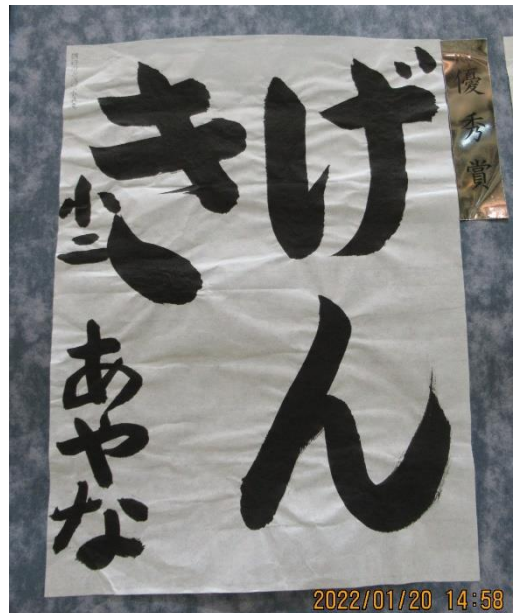 優秀賞
げん
き
小二 あやな
2022/01/20 14:58